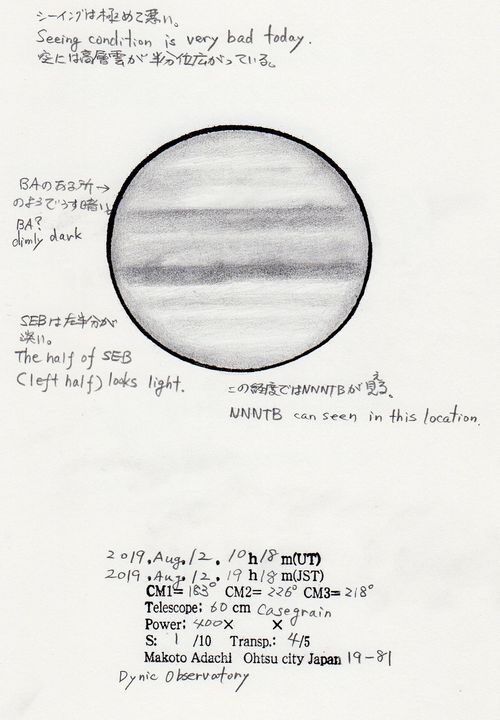 シーイングは極めて悪い。
Seeing condition is very bad today.
空には高層雲が半分位広がっている。
BAのある所→
のようでうす暗い
BA?
dimly dark
SEBは左半分が
淡い。
The half of SEB
(left half) looks light.
この経度ではNNNTBが見える。
NNNTB can seen in this location.
2019. Aug. 12. 10 h 18 m(UT)
2019. Aug. 12. 19 h 18 m(JST)
CM1= 183° CM2= 226° CM3= 218°
Telescope: 60 cm Casegrain
Power: 400× ×
S: 1 /10 Transp.: 4/5
Makoto Adachi Ohtsu city Japan 19-81
Dynic Observatory